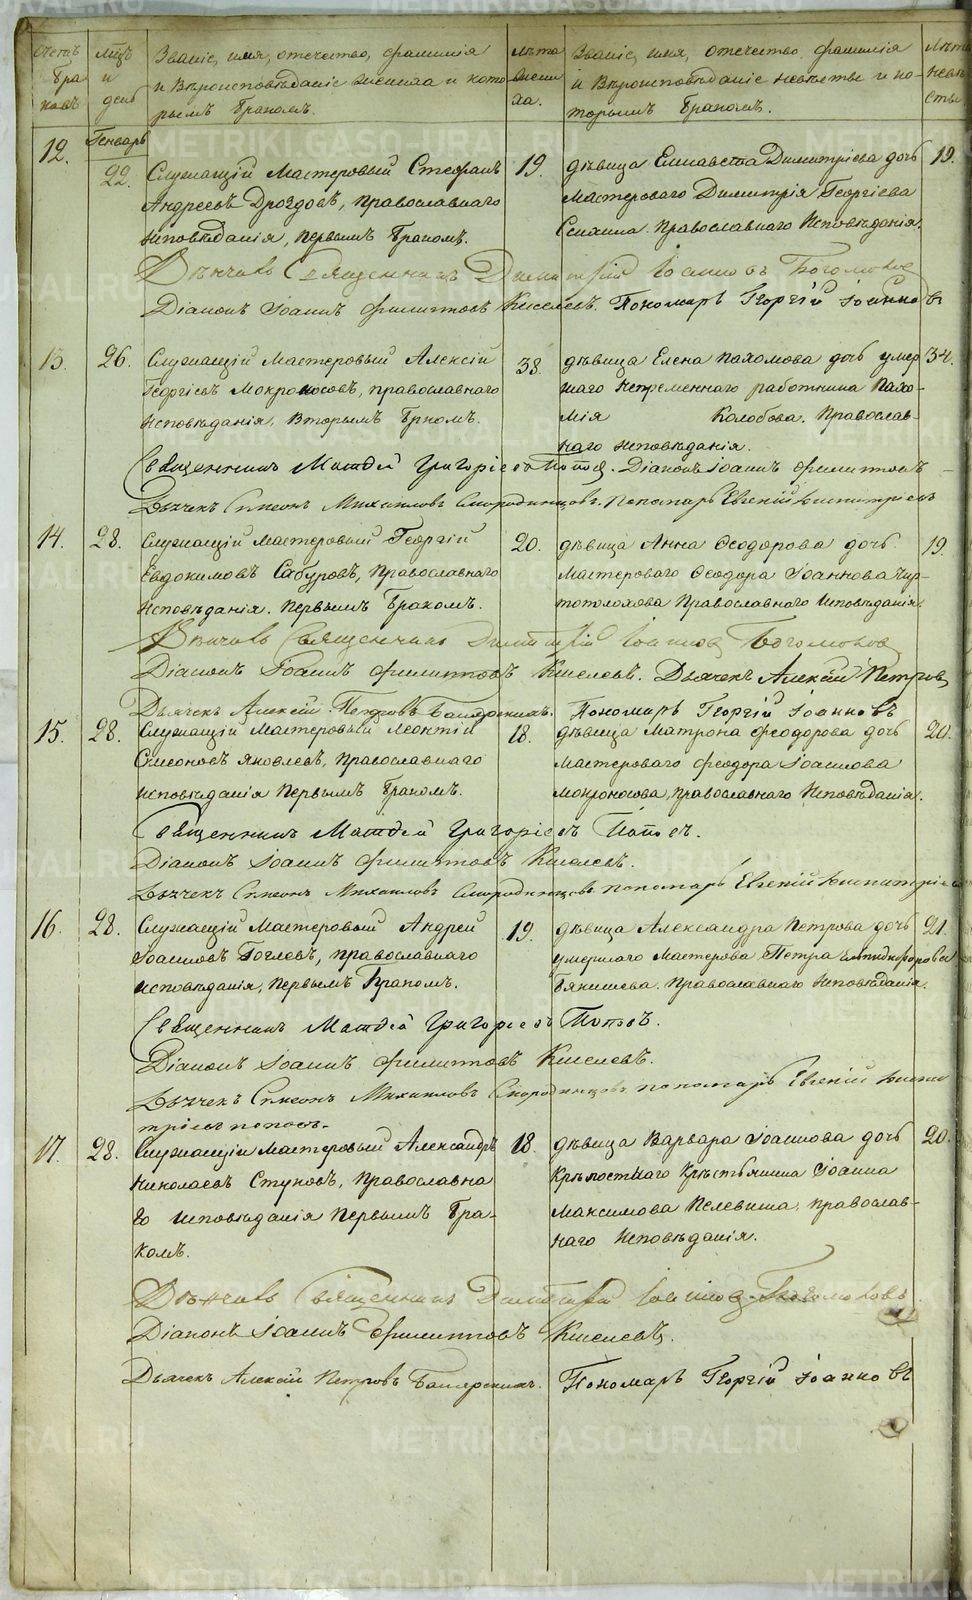 Счетъ браковъ
Мѣсяцъ и день
Званіе, имя, отечество, фамилія
и Вѣроисповѣданіе жениха и кото
рымъ бракомъ.
Лѣта жениха.
Званіе, имя, отечество, фамилія
и Вѣроисповѣданіе невѣсты и ко-
торымъ бракомъ.
Лѣта невѣсты
Генварь
12. 22. Служащій Мастеровый Стефанъ 19. дѣвица Елисавета Димитріева дочь 19.
Андреевъ Дроздовъ, православнаго мастероваго Димитрія Георгіева
исповѣданія, первымъ бракомъ. Православнаго Исповѣданія.
Вѣнчалъ Священникъ Димитрій Іоанновъ Боголюбов
Діаконъ Іоаннъ Филипповъ Киселевъ. Пономарь Георгій Іоанновъ
13. 26. Служащій Мастеровый Алексій 38. дѣвица Елена Пахомова дочь умер 34.
Георгіевъ Мокроносовъ, православнаго шаго непременнаго работника Пахо-
исповѣданія, Вторымъ бркомъ. мія Колобова. Православ-
наго исповѣданія.
Священникъ Матѳей Григоріевъ Попов. Діаконъ Іоаннъ Филипповъ
Дьячек Симеонъ Михаиловъ Смородинцовъ. Пономарь Евгеній
14. 28. Служащій Мастеровый Георгій 20. дѣвица Анна Ѳеодорова дочь 19.
Евдокимовъ Сабуровъ, Православнаго Мастероваго Ѳеодора Іоаннова
исповѣданія. первымъ бракомъ. Православнаго Исповѣданія.
Вѣнчалъ Священникъ Димитрій Іоаннов Боголюбов
Діаконъ Іоаннъ Филипповъ Киселевъ. Дьячекъ Алексій Петров
Дьячекъ Алексій Петровъ Пономарь Георгій Іоанновъ
15. 28. Служащій Мастеровый Леонтій 18. дѣвица Матрона Феодорова дочь 20.
Симеоновъ Яковлевъ, Православнаго мастероваго Феодора Іоаннова
исповѣданія Первымъ бракомъ. Мокроносова, православнаго Исповѣданія.
Священникъ Матѳей Григоріевъ Попов.
Діаконъ Іоаннъ Филипповъ Киселевъ.
Дьячекъ Симеонъ Михаиловъ Смородинцовъ пономарь Евгеній
16. 28. Служащій Мастеровый Андрей 19. дѣвица Александра Петрова дочь 21.
Іоанновъ православнаго умершаго Мастерова Петра
исповѣданія, Первымъ бракомъ. Православнаго Исповѣданія.
Священникъ Матѳей Григоріевъ Поповъ.
Діаконъ Іоаннъ Филипповъ Киселевъ.
Дьячекъ Симеонъ Михаиловъ Смородинцовъ пономарь Евгеній
17. 28. Служащій Мастеровый Александръ 18. дѣвица Варвара Іоаннова дочь 20.
Николаевъ Стуковъ, Православна Крѣпостнаго Крѣстьянина Іоанна
го исповѣданія Первымъ бра- Максимова Пелевина, православ-
комъ. наго Исповѣданія.
Вѣнчалъ Священникъ Димитрій Іоаннов Боголюбовъ
Діаконъ Іоаннъ Филипповъ Киселевъ.
Дьячекъ Алексій Петровъ Пономарь Георгій Іоанновъ
METRIKI.GASO-URAL.RU